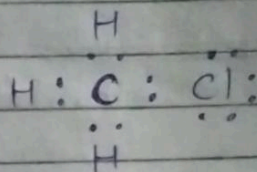 H
H : C : Cl :
H